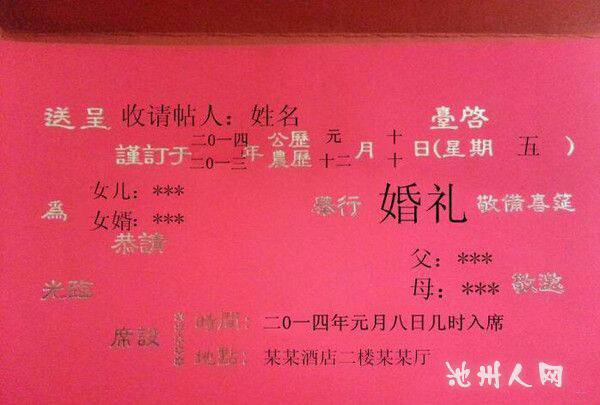 送呈 收请帖人：姓名 臺啓
謹訂于 二0一四 年 公歷 元 月 十 日(星期 五 )
二0一三 農歷 十二 十
為 女儿：*** 舉行 婚礼 敬備喜筵
女婿：***
恭請
父：***
光臨 母：*** 敬邀
席設 時間： 二0一四年元月八日几时入席
地點： 某某酒店二楼某某厅
池州人网